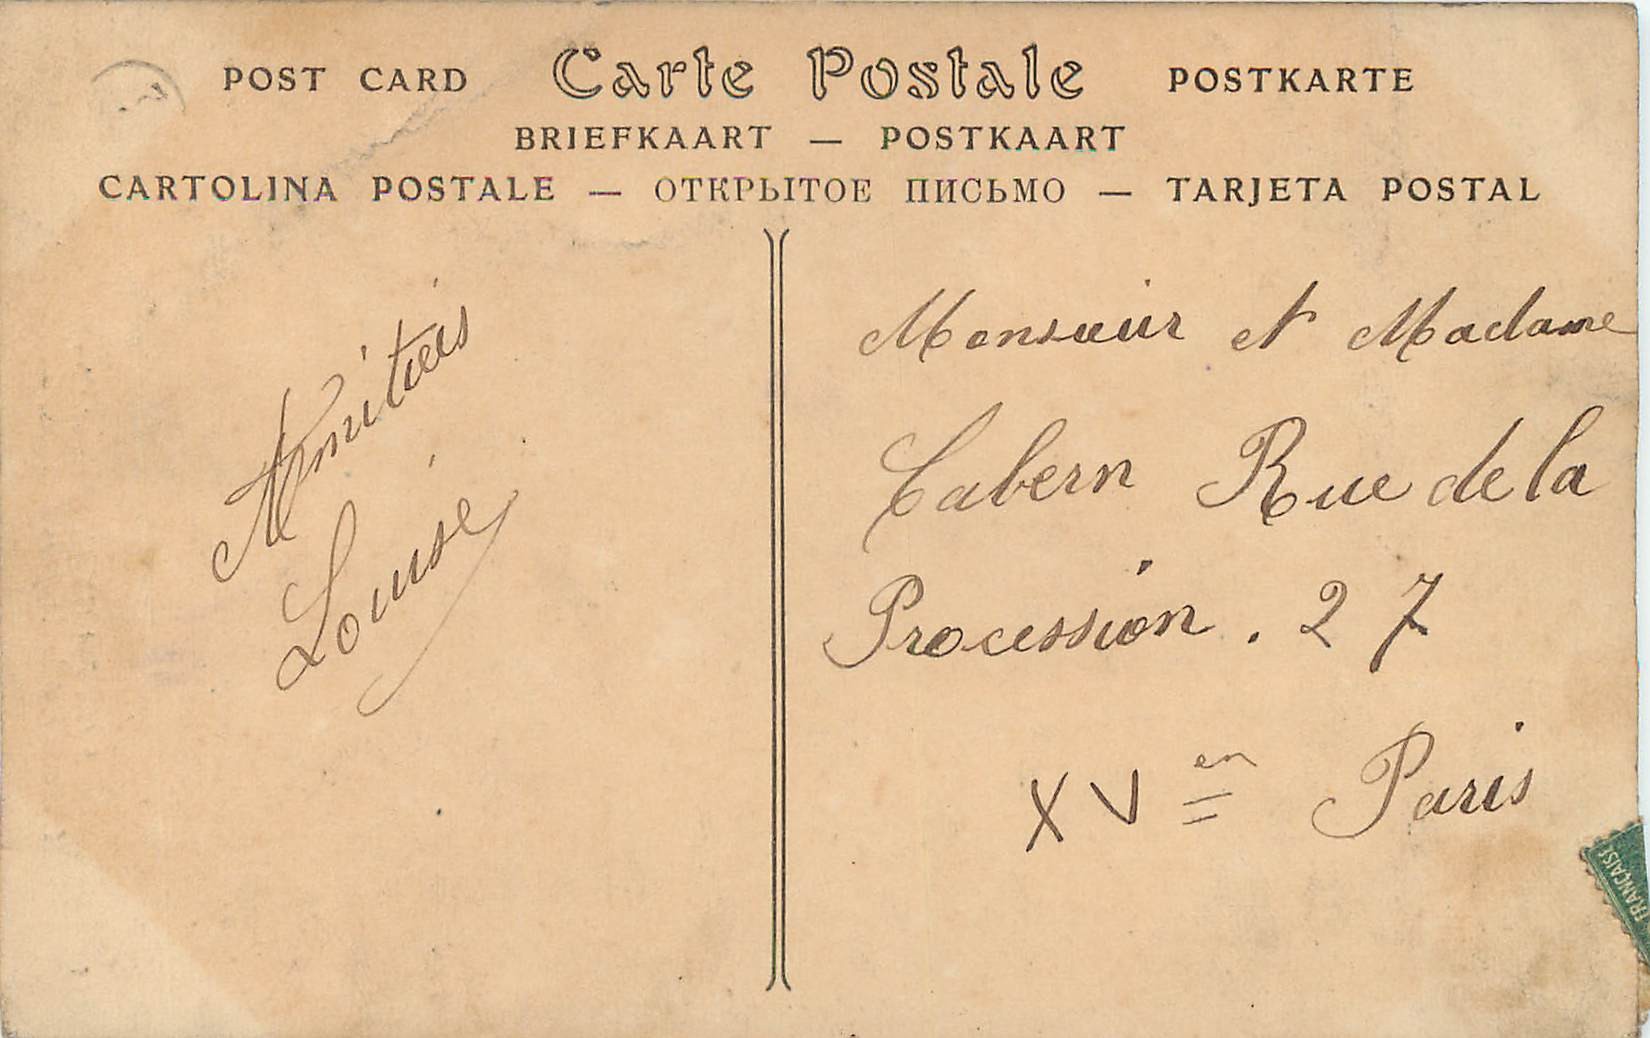 POST CARD Carte Postale POSTKARTE
BRIEFKAART — POSTKAART
CARTOLINA POSTALE — ОТКРЫТОЕ ПИСЬМО — TARJETA POSTAL
Amitiés
Louise
Monsieur et Madame
Cabern Rue de la
Procession . 27
XV en Paris
FRANÇAIS